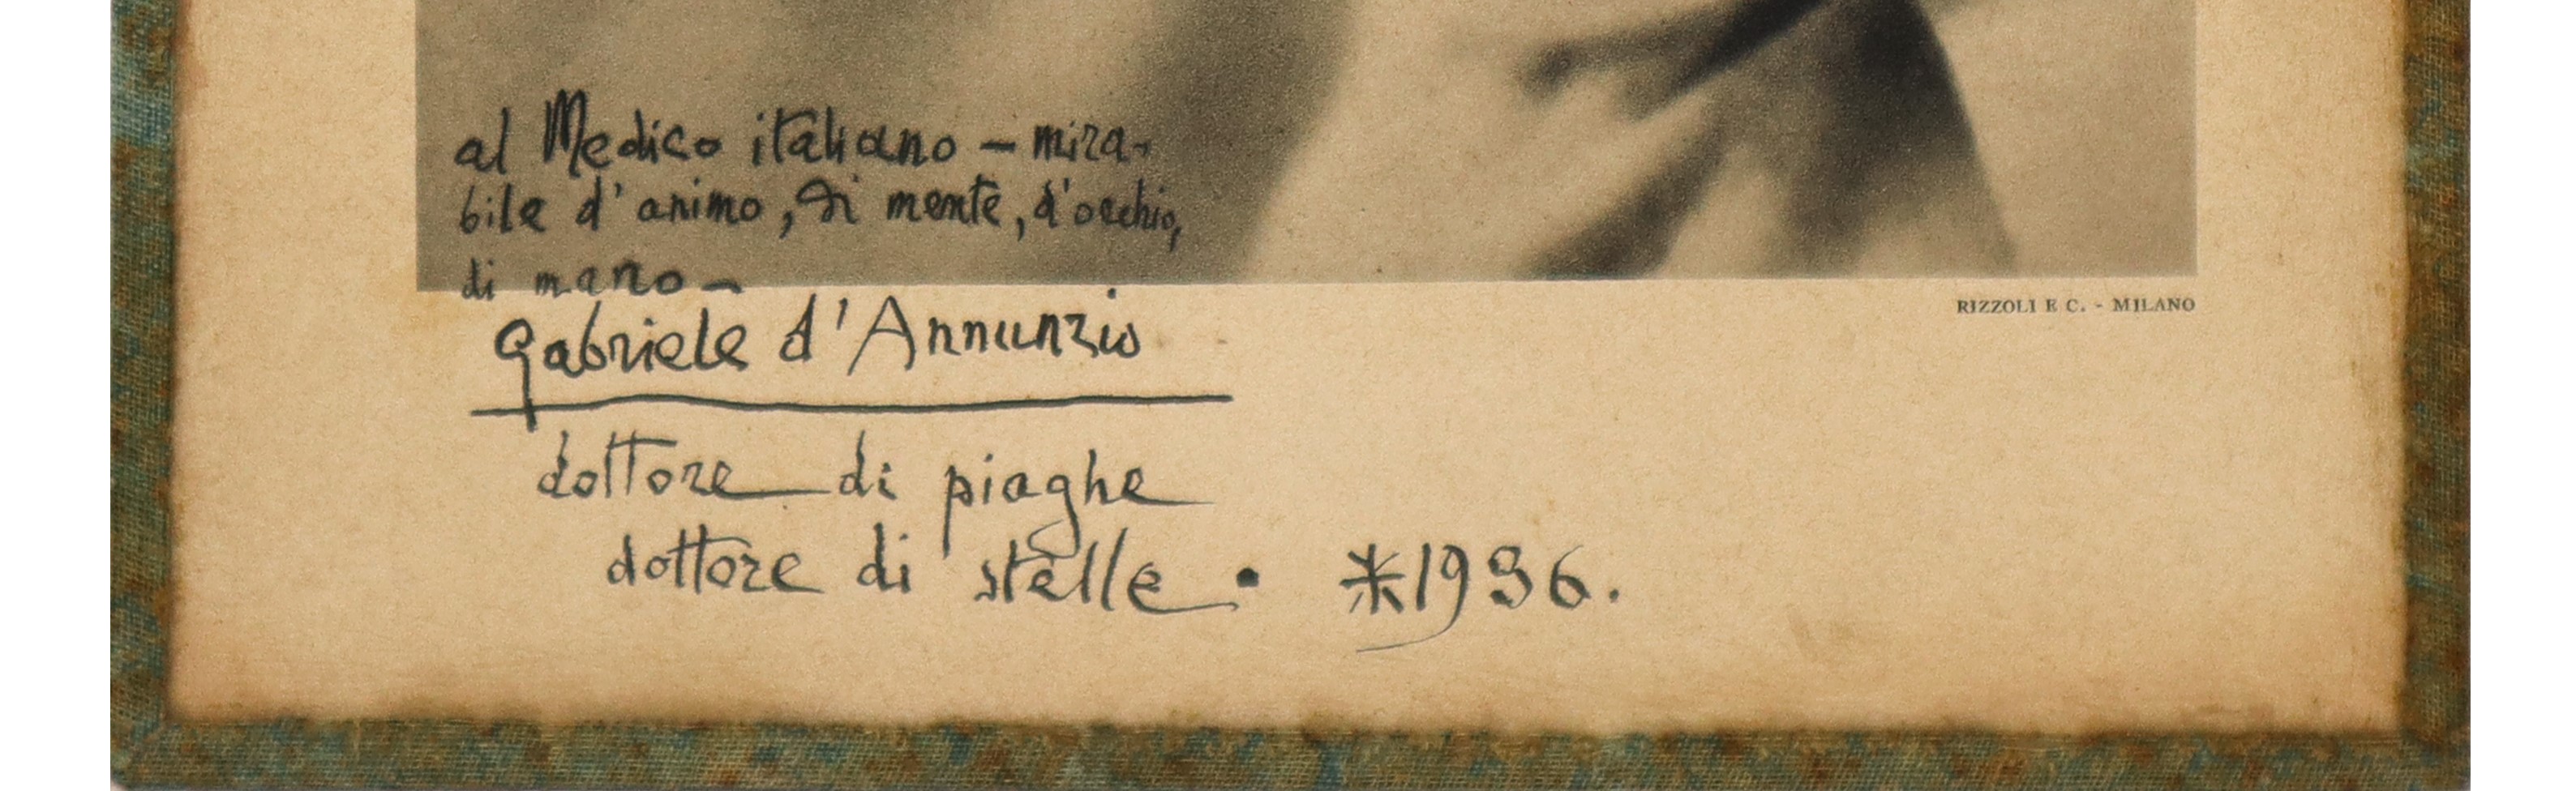 al Medico italiano – mira-
bile d'animo, di mente, d'occhio,
di mano –
RIZZOLI E C. - MILANO
Gabriele d'Annunzio
dottore di piaghe
dottore di stelle • *1936.